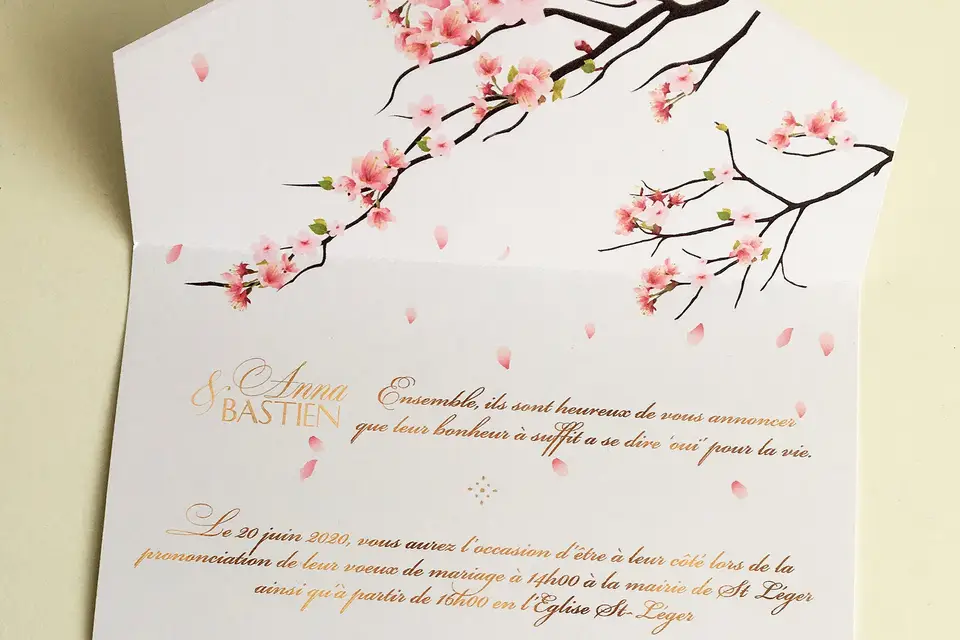 Anna
& BASTIEN
Ensemble, ils sont heureux de vous annoncer
que leur bonheur à suffit a se dire 'oui' pour la vie.
Le 20 juin 2020, vous aurez l'occasion d'être à leur côté lors de la
prononciation de leur voeux de mariage à 14h00 à la mairie de St Léger
ainsi qu'à partir de 16h00 en l'Eglise St-Léger